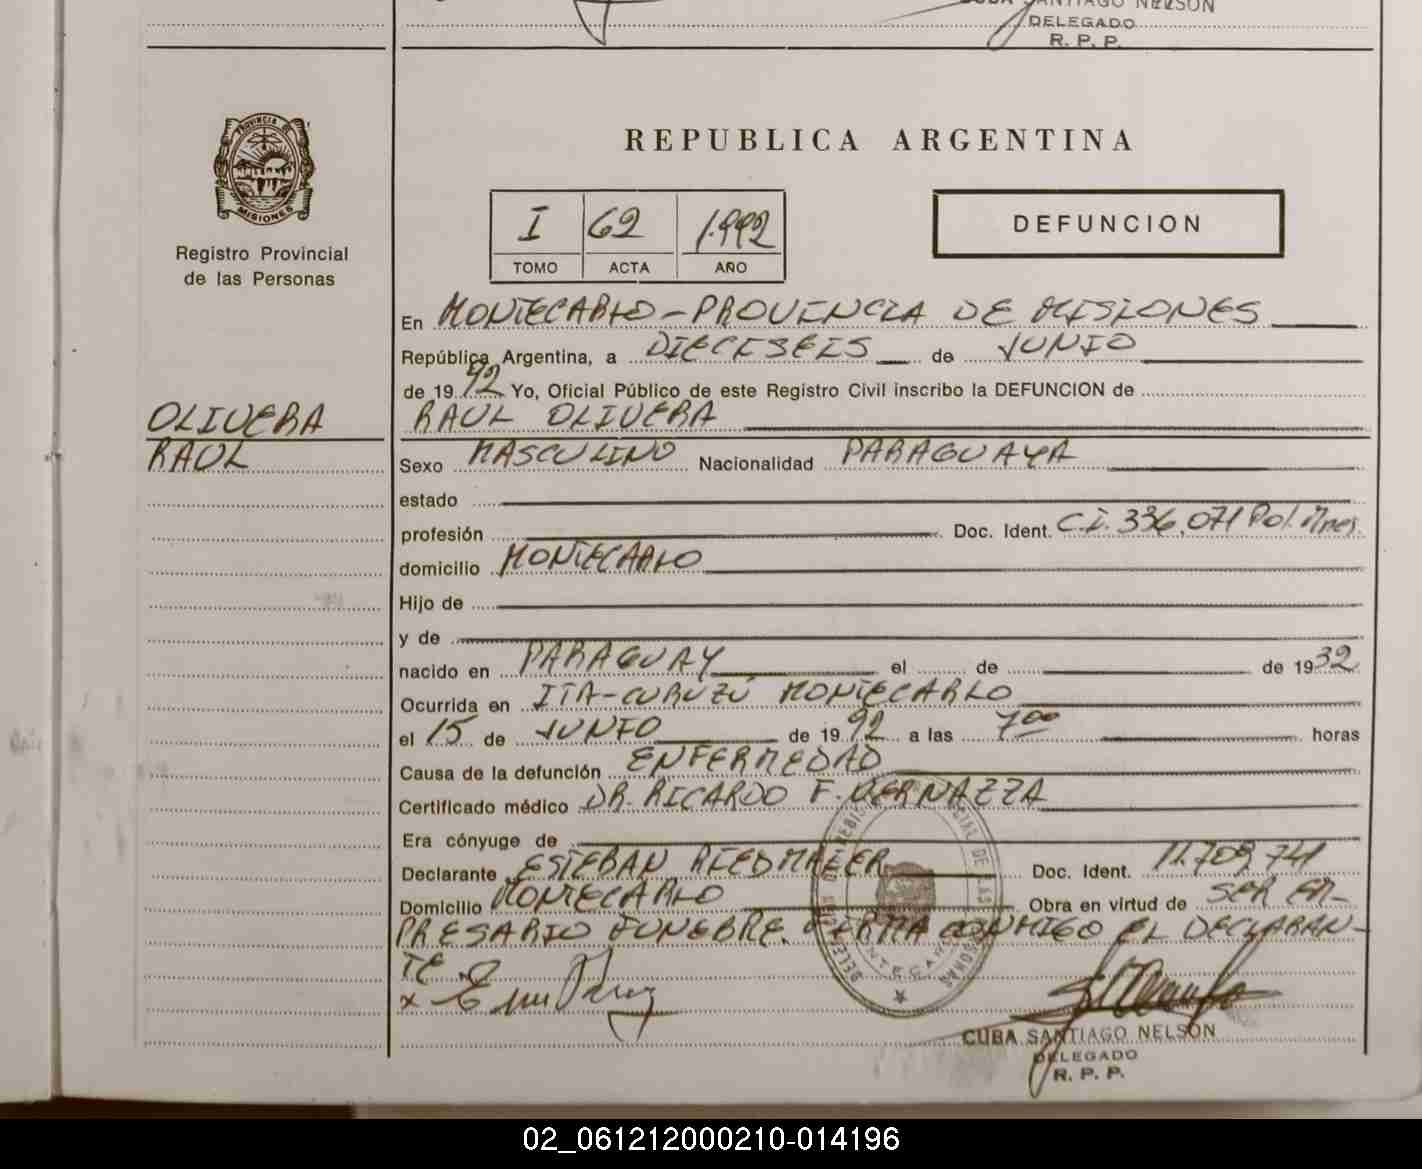 CUBA SANTIAGO NELSON
DELEGADO
R. P. P.
PROVINCIA DE
MISIONES
Registro Provincial
de las Personas
REPUBLICA ARGENTINA
I 62 1.992
TOMO ACTA AÑO
DEFUNCION
En MONTECARLO - PROVINCIA DE MISIONES
República Argentina, a DIECISEIS de JUNIO
de 1992 Yo, Oficial Público de este Registro Civil inscribo la DEFUNCION de
OLIVERA
RAUL OLIVERA
RAUL
Sexo MASCULINO Nacionalidad PARAGUAYA
estado
profesión Doc. Ident. C.I. 336.071 Pol. Mnes.
domicilio MONTECARLO
Hijo de
y de
nacido en PARAGUAY el de de 1932
Ocurrida en ITA-CURUZÚ MONTECARLO
el 15 de JUNIO de 1992 a las 7 00 horas
Causa de la defunción ENFERMEDAD
Certificado médico DR. RICARDO F. VERNAZZA
Era cónyuge de
Declarante ESTEBAN RIEDMAIER Doc. Ident. 11.709.741
Domicilio MONTECARLO Obra en virtud de SER EM-
PRESARIO FUNEBRE. FIRMA CONMIGO EL DECLARAN-
TE
CUBA SANTIAGO NELSON
DELEGADO
R. P. P.
02_061212000210-014196